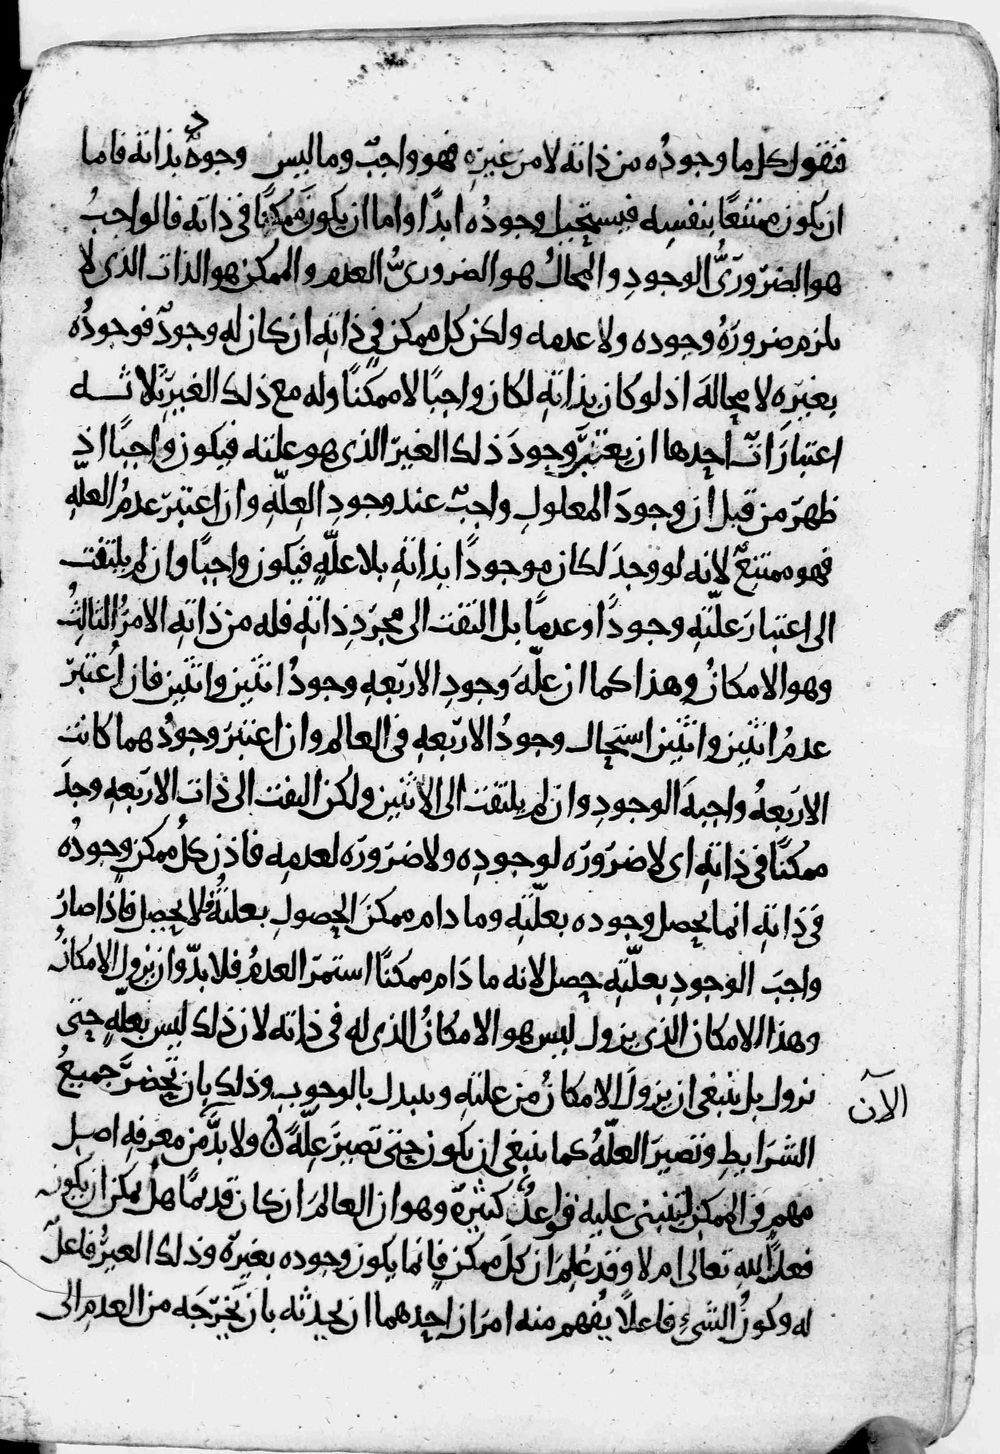 فنقول كل ما وجوده من ذاته لا من غيره فهو واجب وما ليس وجوده بذاته فاما
ان يكون ممتنعًا بنفسه فيستحيل وجوده ابدًا واما ان يكون ممكنًا في ذاته فالواجبُ
هو الضروريُّ الوجودِ والمحالُ هو الضروريُّ العدمِ والممكن هو الذات الذي لا
يلزم ضرورةُ وجوده ولا عدمه ولكن كل ممكن في ذاتهِ ان كان له وجودٌ فوجودُه
بغيره لا محالةَ اذ لو كان بذاتهِ لكان واجبًا لا ممكنًا وله مع ذلك الغيرِ ثلاثه
اعتبارات احدها ان يعتبرَ وجودَ ذلك الغير الذي هو علته فيكون واجبًا اذ
ظهر من قبل ان وجودَ المعلولِ واجبٌ عند وجودِ العِلّهِ وان اعتبر عدمُ العلهِ
فهو ممتنعٌ لانه لو وجدَ لكان موجودًا بذاتهِ بلا علّهٍ فيكون واجبًا وان لم يلتفت
الى اعتبار علّتهِ وجودًا وعدمًا بل التفت الى مجردِ ذاتهِ فله من ذاتهِ الامرُ الثالثُ
وهو الامكانُ وهذا كما ان علّهَ وجودِ الاربعهِ وجودُ اثنين واثنين فان اُعتبر
عدمُ اثنين واثنين استحال وجودُ الاربعهِ في العالم وان اعتبر وجودُهما كانت
الاربعهُ واجبهَ الوجودِ وان لم يلتفت الى الاثنين ولكن التفت الى ذات الاربعهِ وجدَ
ممكنًا في ذاتهِ اى لا ضروره لوجودِه ولا ضروره لعدمهِ فاذن كلُ ممكن وجودُه
في ذاتهِ انما يحصل وجوده بعلّتهِ وما دام ممكنَ الحصولِ بعلته فلا يحصل فاذا صار
واجبَ الوجودِ بعلّتهِ حصل لانه ما دام ممكنًا استمر العدمُ فلا بدّ وان يزول الامكانُ
وهذا الامكان الذي يزول ليس هو الامكانُ الذي له في ذاته لان ذلك ليس بعلّهٍ حتى
يزول بل ينبغى ان يزولَ الامكانُ من علتهِ ويبدل بالوجوب وذلك بان تحضر جميعُ
الآن
الشرايطِ وتصير العلّهُ كما ينبغي ان يكون حتى تصير عِلّهً ولا بدَّ من معرفهِ اصل
مهم في الممكن لتنبنى عليه قواعدُ كثيرة وهو ان العالمَ ان كان قديمًا هل يمكن ان يكون
فعلًا لله تعالى ام لا وقد عُلِمَ ان كلَ ممكن فانما يكون وجوده بغيره وذلك الغيرُ فاعل
له وكونُ الشيءِ فاعلًا يُفهم منه امران احدهما ان يحدثه بان يُخرجَه من العدمِ الى